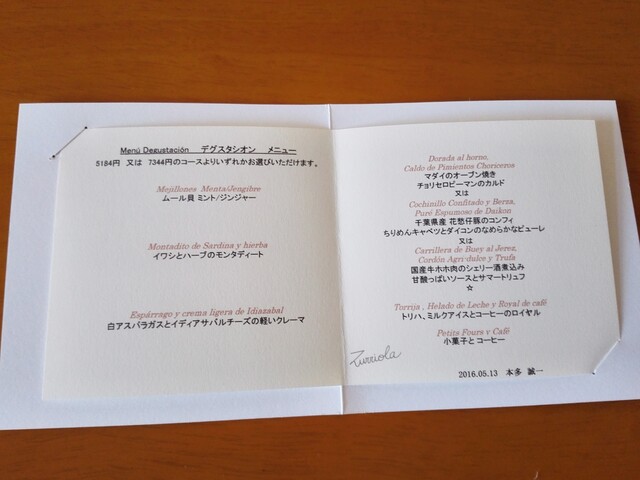 Menú Degustación デグスタシオン メニュー
5184円 又は 7344円のコースよりいずれかお選びいただけます。
Mejillones Menta/Jengibre
ムール貝 ミント/ジンジャー
Montadito de Sardina y hierba
イワシとハーブのモンタディート
Espárrago y crema ligera de Idiazabal
白アスパラガスとイディアサバルチーズの軽いクレーマ
Dorada al horno,
Caldo de Pimientos Choriceros
マダイのオーブン焼き
チョリセロピーマンのカルド
又は
Cochinillo Confitado y Berza,
Puré Espumoso de Daikon
千葉県産 花悠仔豚のコンフィ
ちりめんキャベツとダイコンのなめらかなピューレ
又は
Carrillera de Buey al Jerez,
Cordón Agri-dulce y Trufa
国産牛ホホ肉のシェリー酒煮込み
甘酸っぱいソースとサマートリュフ
☆
Torrija , Helado de Leche y Royal de café
トリハ、ミルクアイスとコーヒーのロイヤル
Petits Fours y Café
小菓子とコーヒー
Zurriola
2016.05.13 本多 誠一